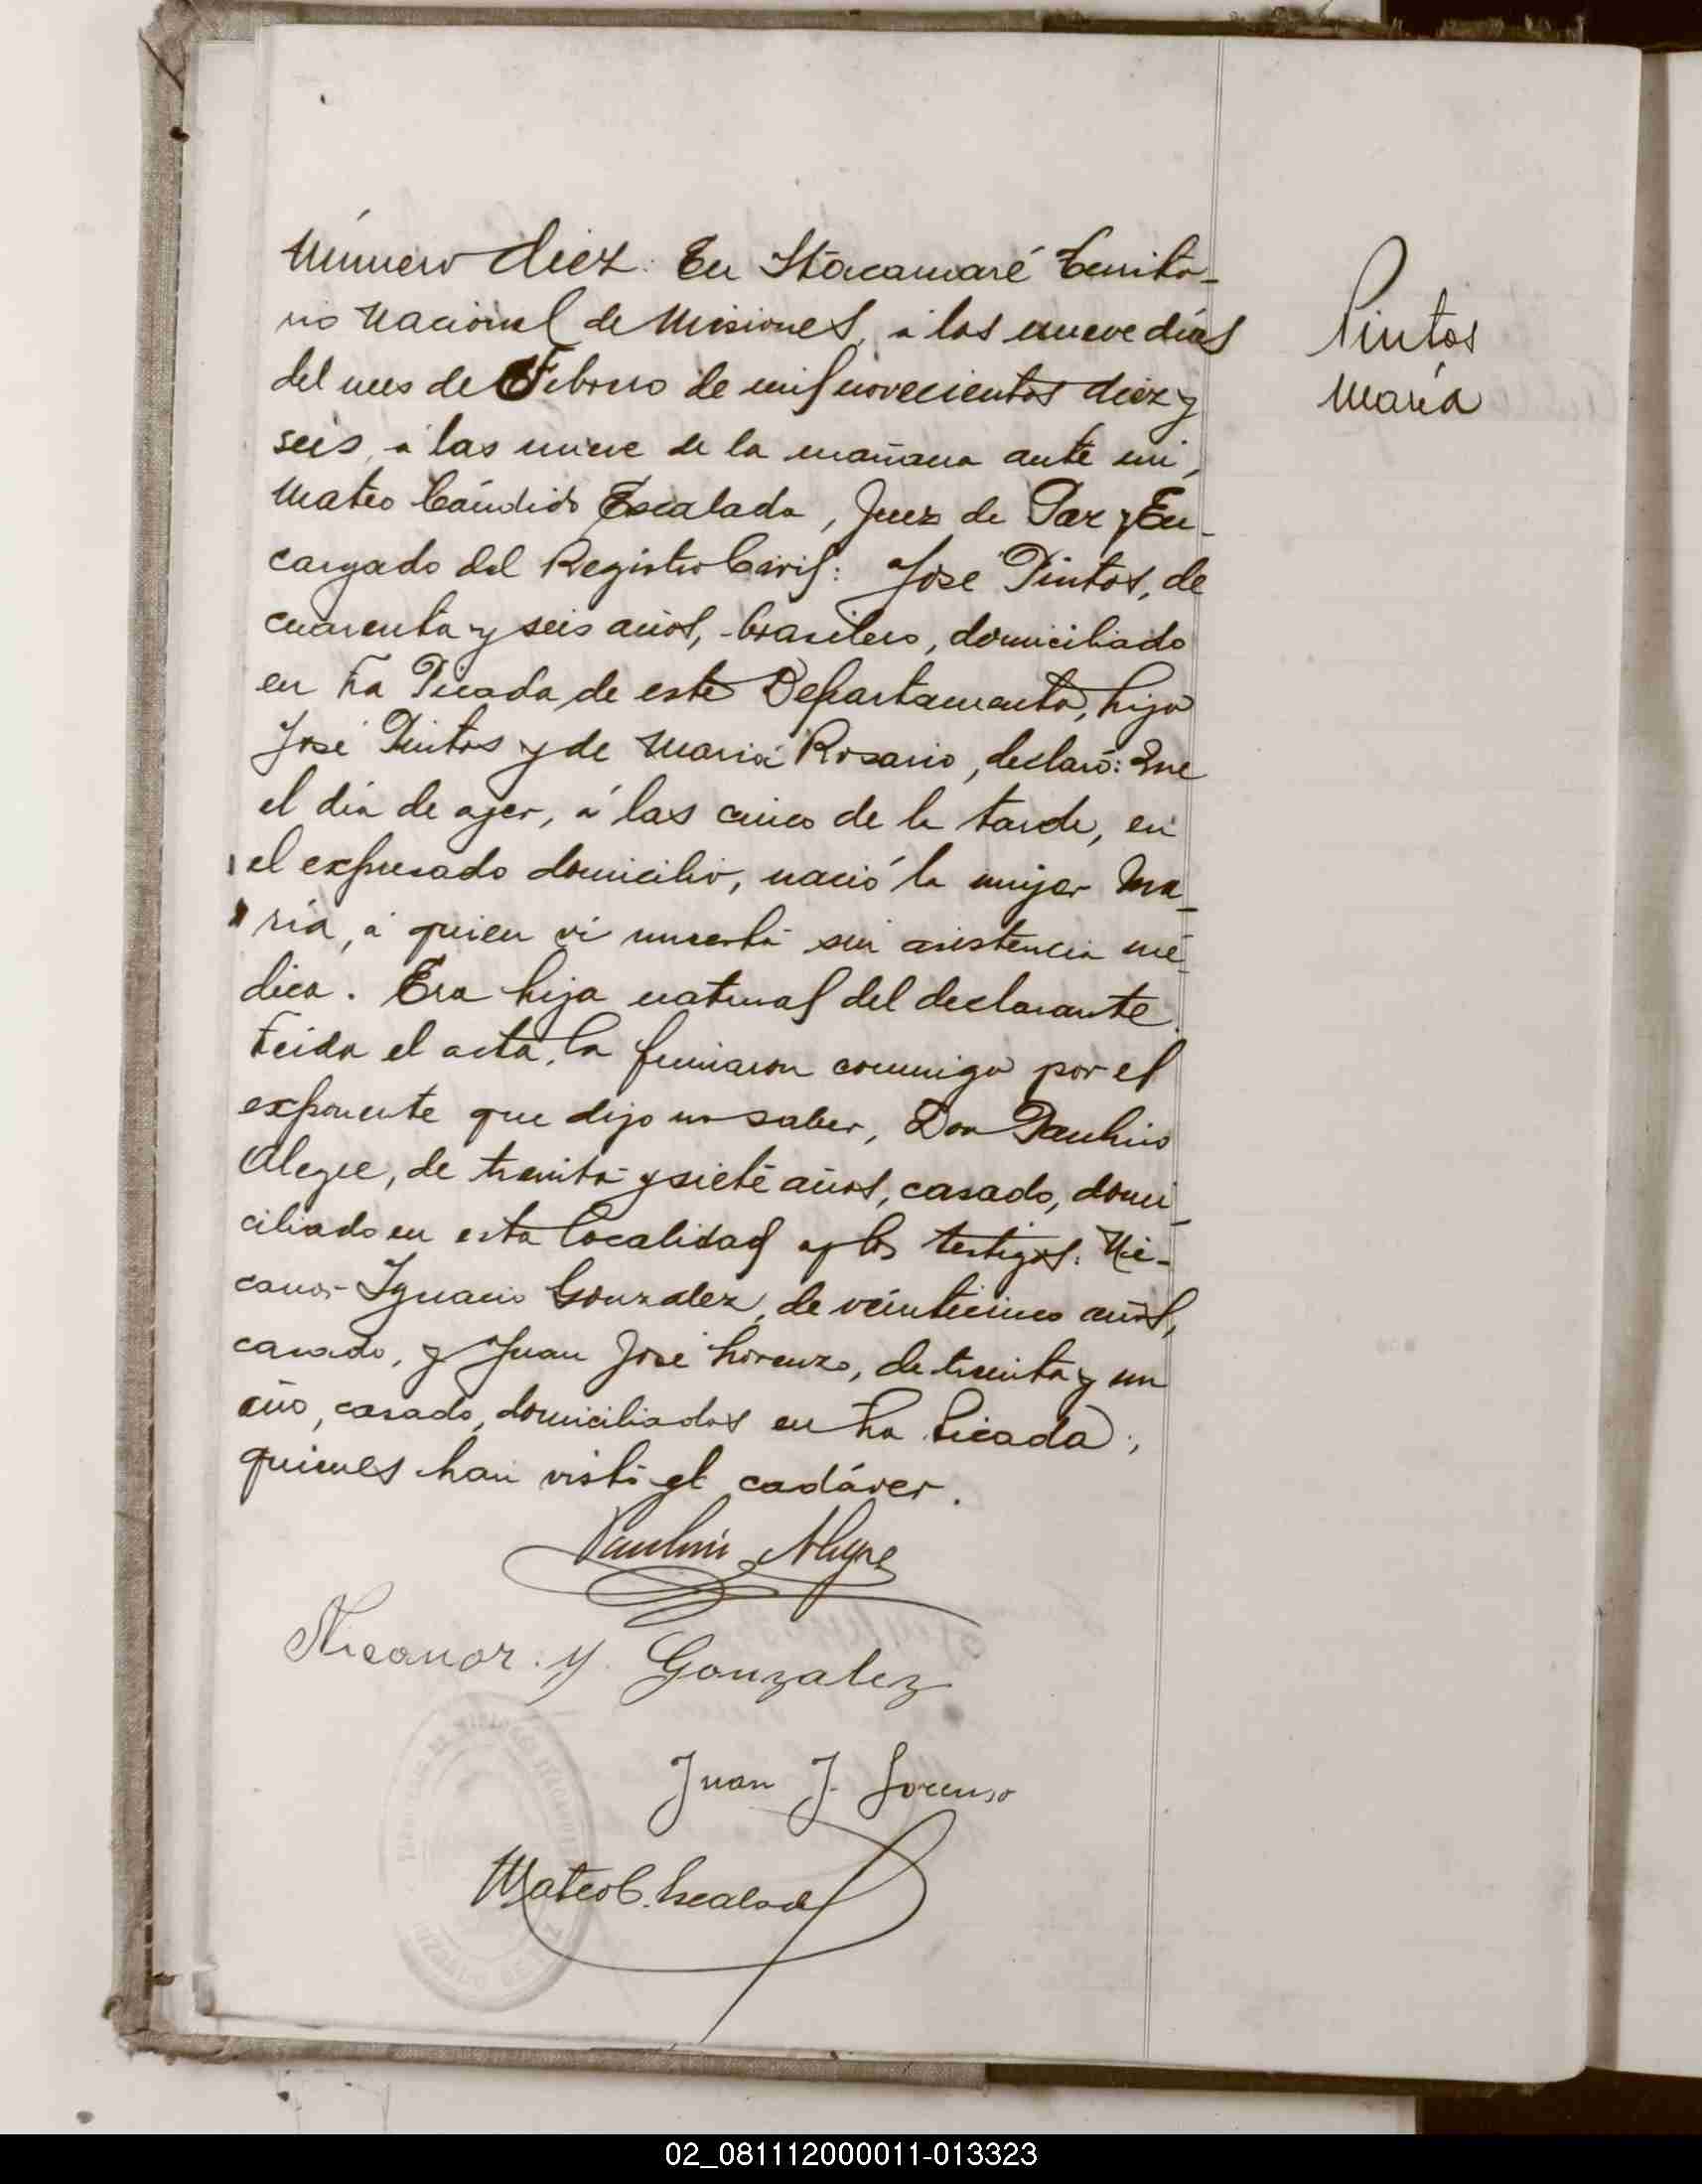 Número diez. En Itacaruaré Territo-
rio Nacional de Misiones, á las nueve días
del mes de Febrero de mil novecientos diez y
seis, á las nueve de la mañana ante mi,
Mateo Cándido Escalada, Juez de Paz y En-
cargado del Registro Civil: José Pintos, de
cuarenta y seis años, brasilero, domiciliado
en La Picada de este Departamento, hijo
José Pintos y de María Rosario, declaró: Que
el día de ayer, á las cinco de la tarde, en
el expresado domicilio, nació la mujer Ma-
ría, á quien vi muerta sin asistencia mé-
dica. Era hija natural del declarante.
Leida el acta, la firmaron conmigo por el
exponente que dijo no saber, Don Paulino
Alegre, de treinta y siete años, casado, domi-
ciliado en esta localidad y los testigos: Ni-
canor Ignacio Gonzalez, de veinticinco años,
casado, y Juan José Lorenzo, de treinta y un
año, casado, domiciliados en La Picada;
quienes han visto el cadáver.
Paulino Alegre
Nicanor. Y. Gonzalez
Juan J. Lorenso
Mateo C. Escalada
JUZGADO DE
Pintos
María
02_081112000011-013323